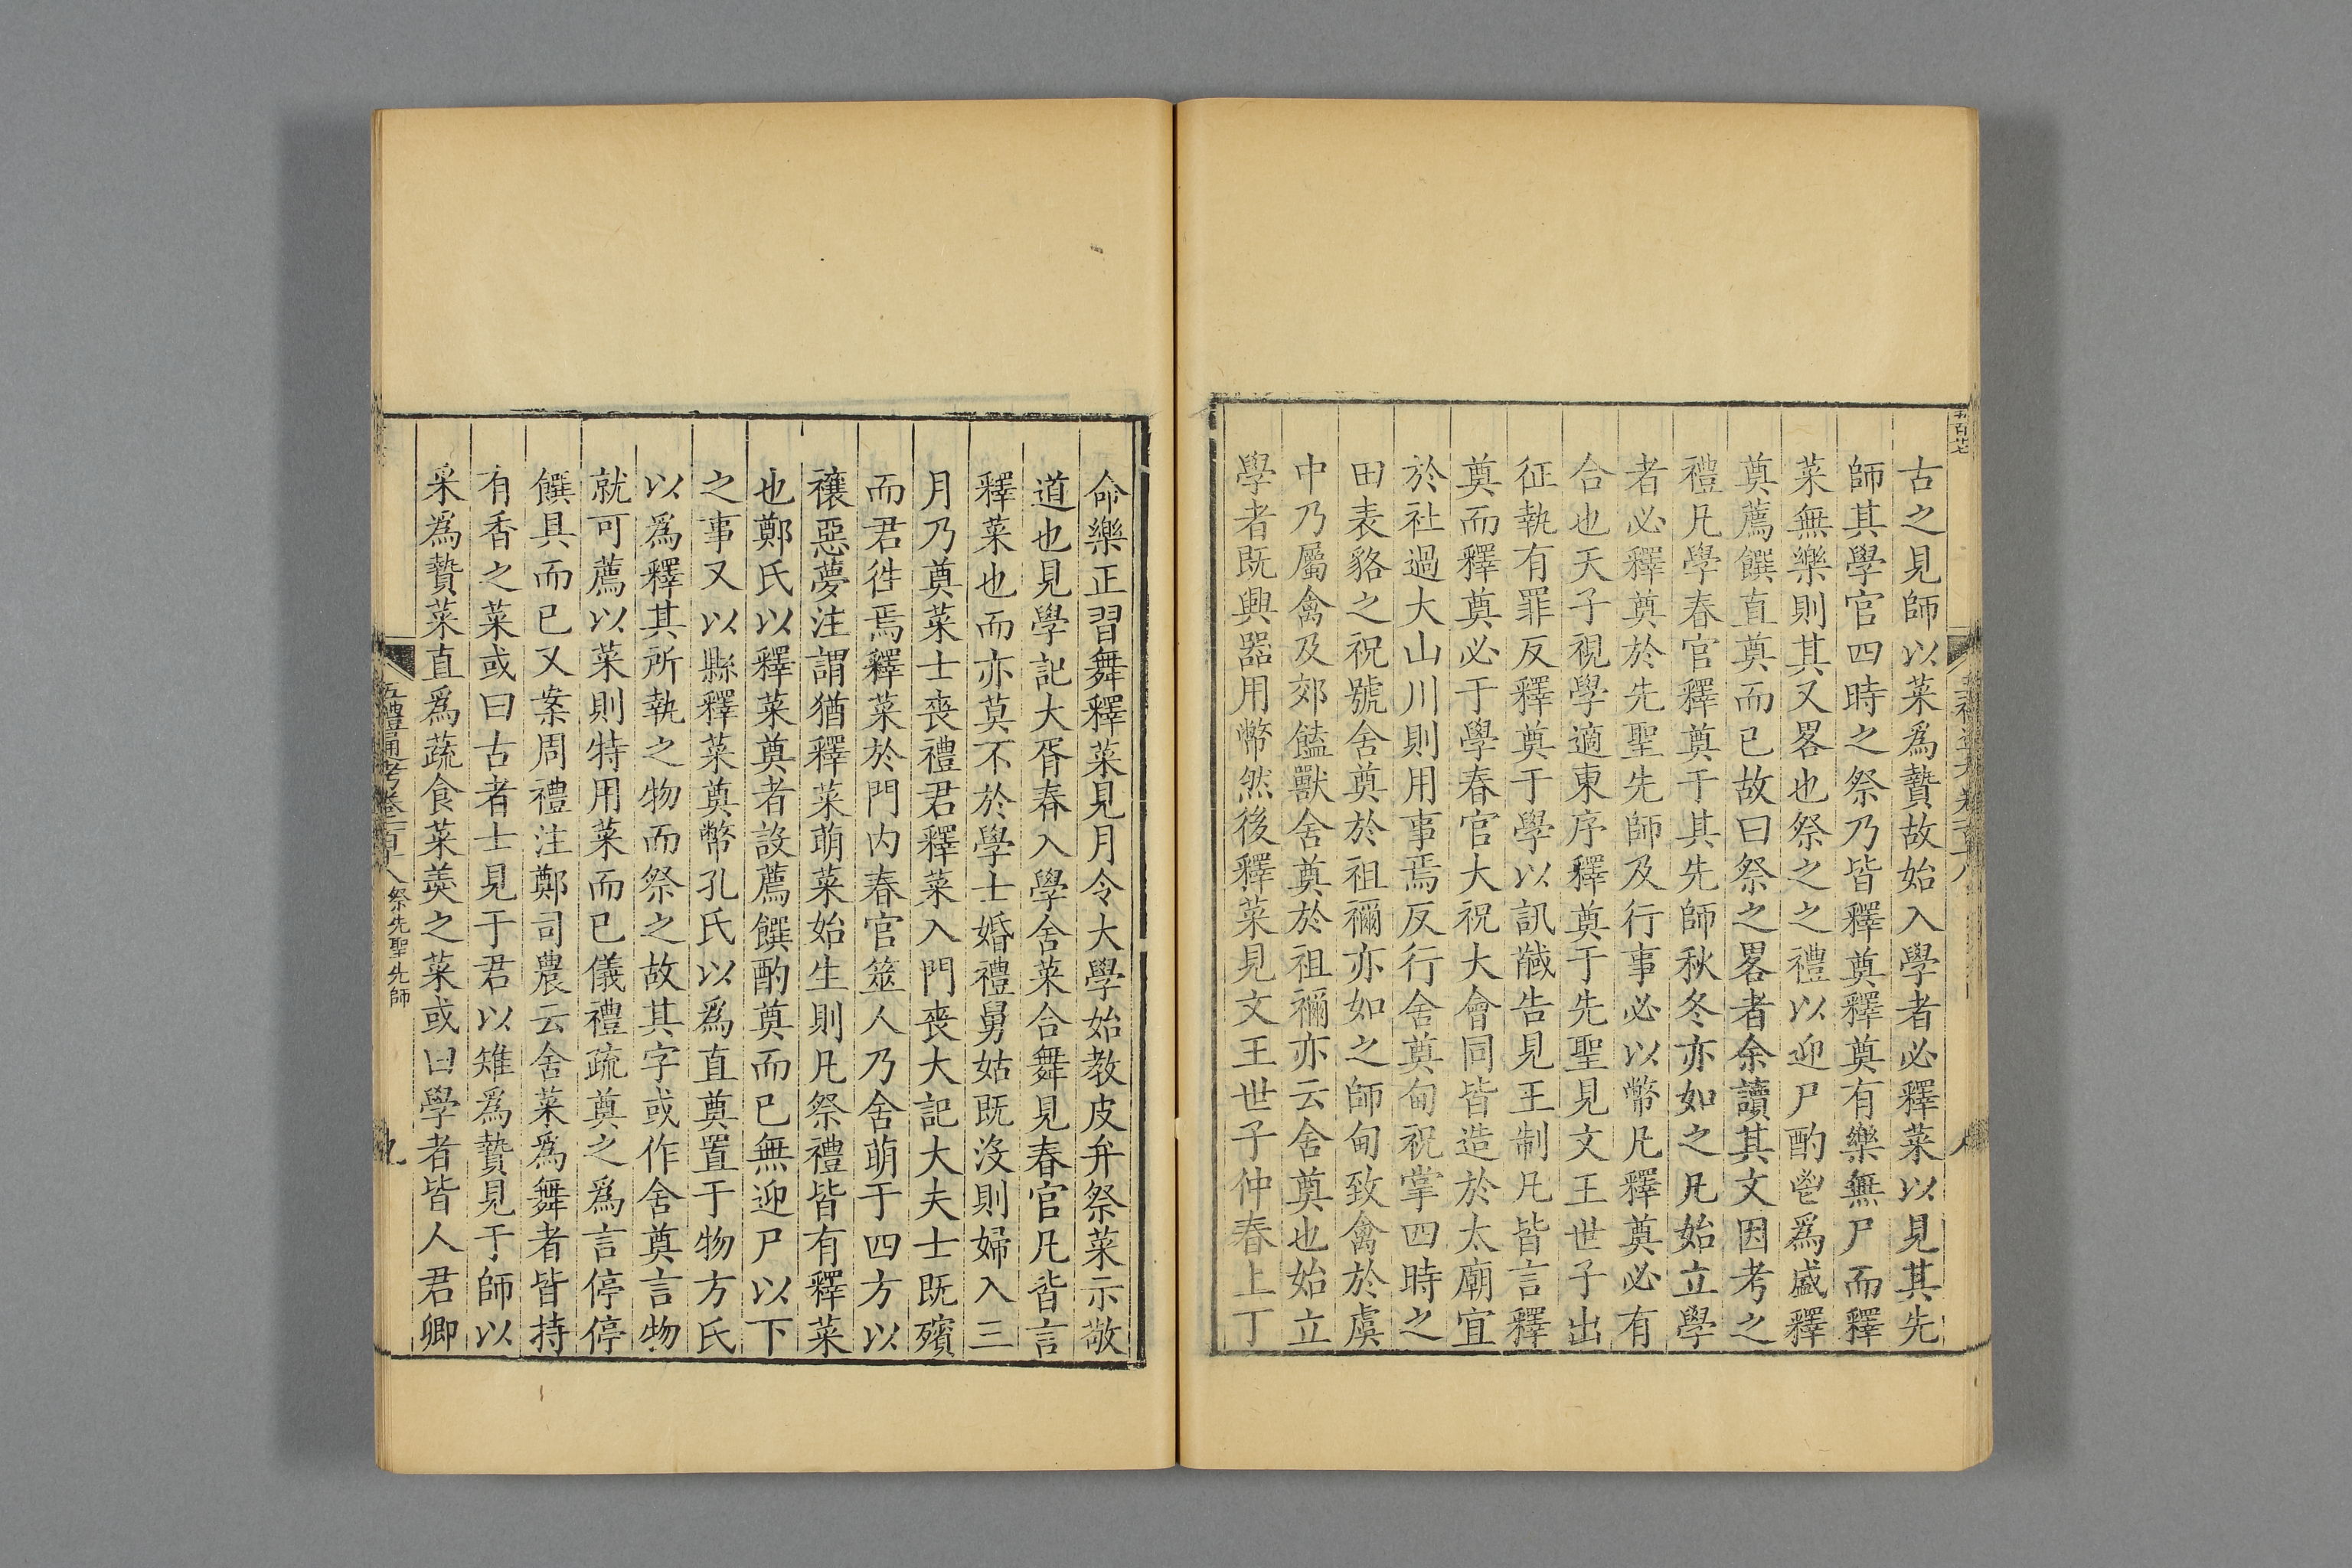 古之見師以菜爲贄故始入學者必釋菜以見其先
師其學官四時之祭乃皆釋奠釋奠有樂無尸而釋
菜無樂則其又畧也祭之之禮以迎尸酌鬯爲盛釋
奠薦饌直奠而已故曰祭之畧者余讀其文因考之
禮凡學春官釋奠于其先師秋冬亦如之凡始立學
者必釋奠於先聖先師及行事必以幣凡釋奠必有
合也天子視學適東序釋奠于先聖見文王世子出
征執有罪反釋奠于學以訊馘告見王制凡皆言釋
奠而釋奠必于學春官大祝大會同皆造於太廟宜
於社過大山川則用事焉反行舍奠甸祝掌四時之
田表貉之祝號舍奠於祖禰亦如之師甸致禽於虞
中乃屬禽及郊饁獸舍奠於祖禰亦云舍奠也始立
學者既興器用幣然後釋菜見文王世子仲春上丁
命樂正習舞釋菜見月令大學始教皮弁祭菜示敬
道也見學記大胥春入學舍菜合舞見春官凡皆言
釋菜也而亦莫不於學士婚禮舅姑既沒則婦入三
月乃奠菜士喪禮君釋菜入門喪大記大夫士既殯
而君徃焉釋菜於門内春官筮人乃舍萌于四方以
禳惡夢注謂猶釋菜萌菜始生則凡祭禮皆有釋菜
也鄭氏以釋菜奠者設薦饌酌奠而已無迎尸以下
之事又以縣釋菜奠幣孔氏以爲直奠置于物方氏
以爲釋其所執之物而祭之故其字或作舍奠言物
就可薦以菜則特用菜而已儀禮疏奠之爲言停停
饌具而已又案周禮注鄭司農云舍菜爲舞者皆持
有香之菜或曰古者士見于君以雉爲贄見于師以
采爲贄菜直爲蔬食菜羮之菜或曰學者皆人君卿
五禮通考卷一百十八 祭先聖先師 九